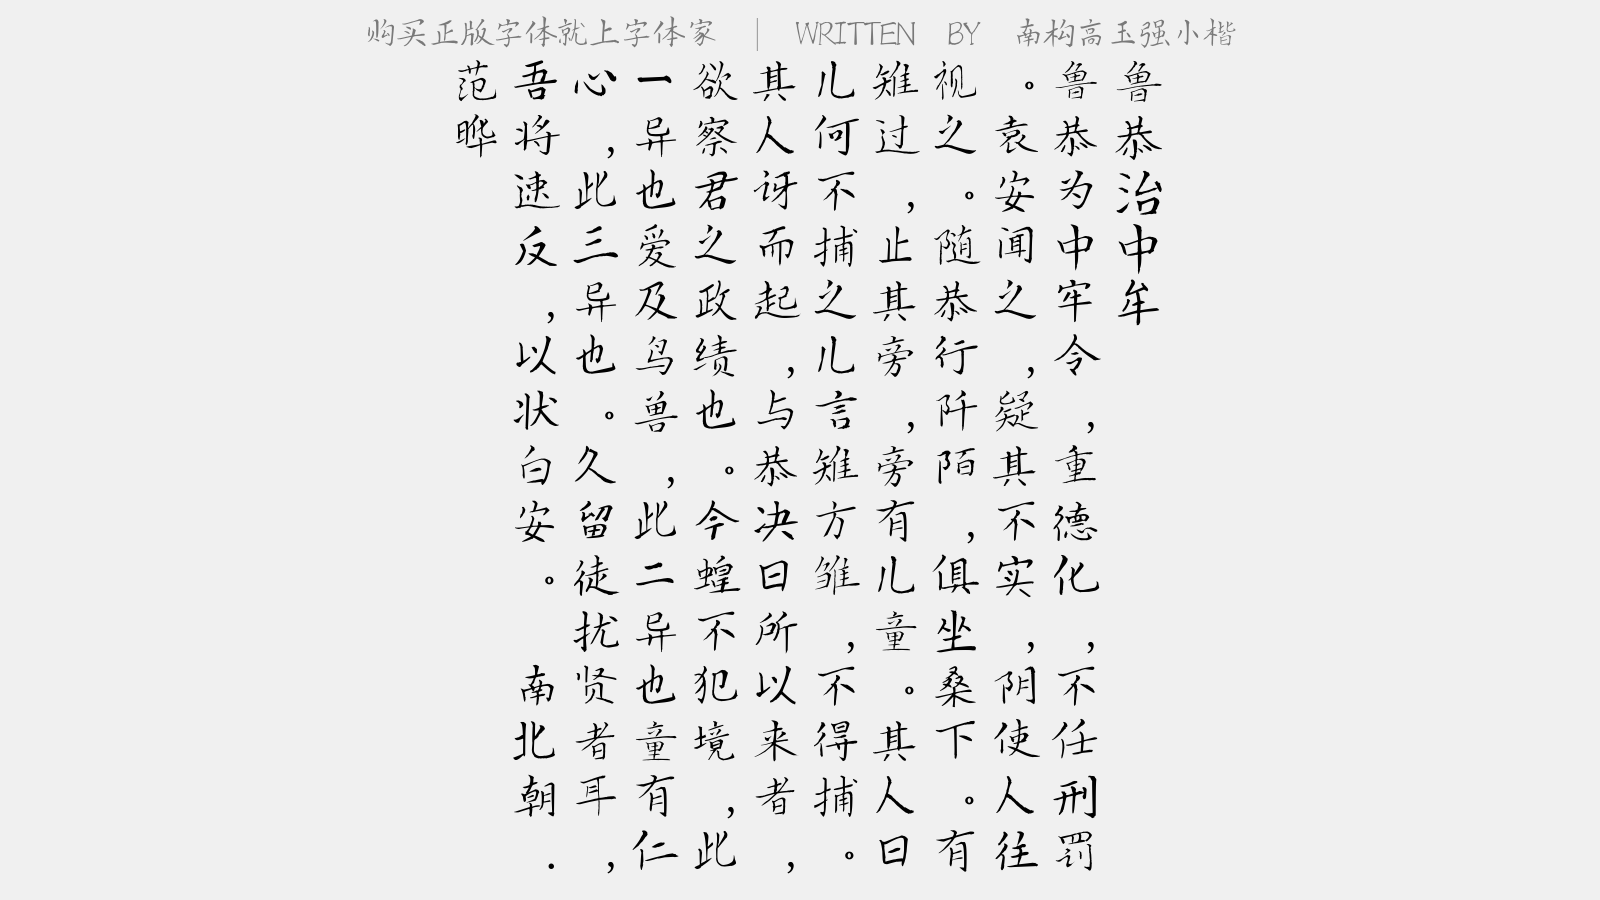 购买正版字体就上字体家 | WRITTEN BY 南构高玉强小楷
鲁恭治中牟
鲁恭为中牢令，重德化，不任刑罚
。袁安闻之，疑其不实，阴使人往
视之。随恭行阡陌，俱坐桑下。有
雉过，止其旁，旁有儿童。其人曰
儿何不捕之儿言雉方雏，不得捕。
其人讶而起，与恭决曰所以来者，
欲察君之政绩也。今蝗不犯境，此
一异也爱及鸟兽，此二异也童有仁
心，此三异也。久留徒扰贤者耳，
吾将速反，以状白安。 南北朝.
范晔